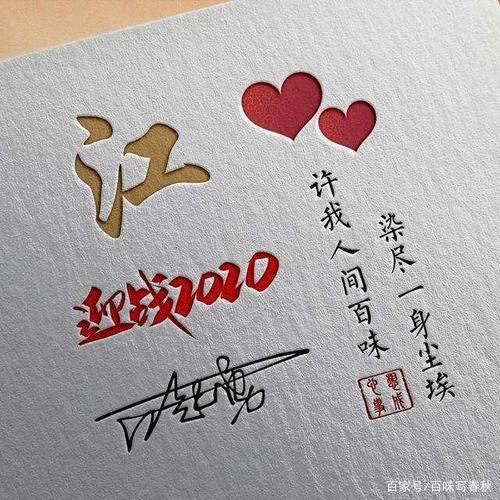 江
迎战2020
许我人间百味
染尽一身尘埃
心想事成
百家号/百味写春秋